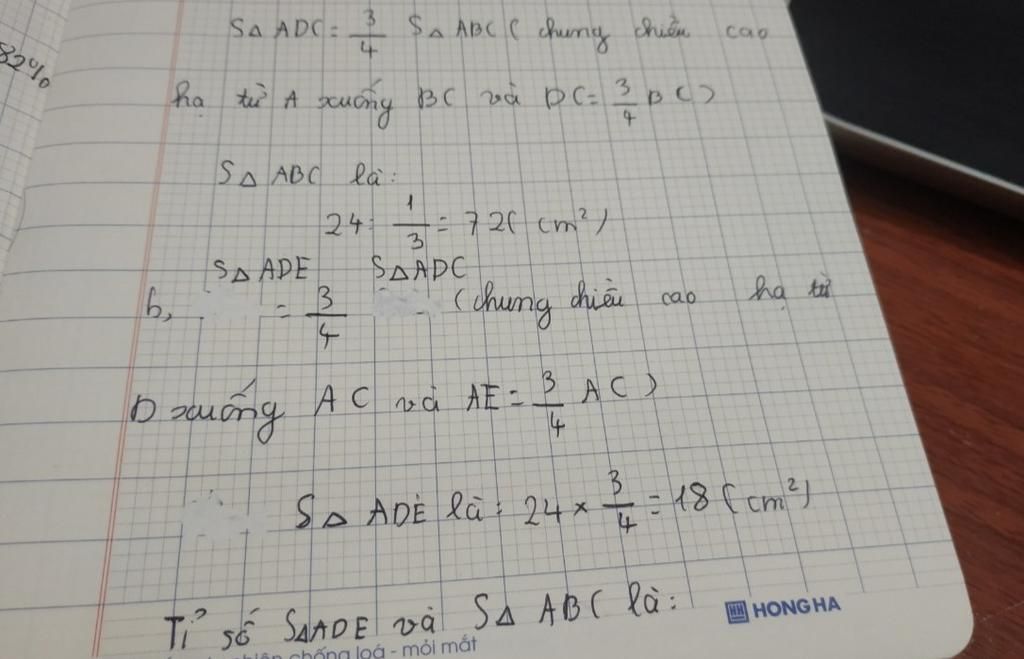 82%
S△ ADC = 3/4 S△ ABC ( chung chiều cao
hạ từ A xuống BC và DC = 3/4 BC )
S△ ABC là:
24 : 1/3 = 72 ( cm²)
S△ ADE S△ ADC
b, = 3/4 (chung chiều cao hạ từ
D xuống AC và AE = 3/4 AC )
S△ ADE là: 24 × 3/4 = 18 ( cm²)
Tỉ số S△ADE và S△ ABC là:
HONG HA
chống loá - mỏi mắt